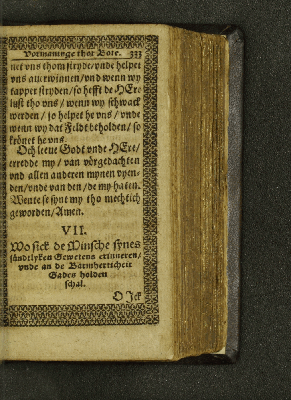 Vormaninge thor Bote. 333
net vns thom stryde/vnde helpet
vns auerwinnen/vnd wenn wy
tapper stryden/so hefft de HEre
lust tho vns/wenn wy schwack
werden/so helpet he vns/vnde
wenn wy dat Feldt beholden/so
krönet he vns.
Och leeue Godt vnde HEre/
erredde my/van vörgedachten
vnd allen anderen mynen vyen-
den/vnde van den/de my haten.
Wente se synt my tho mechtich
geworden/Amen.
VII.
Wo sick de Minsche synes
sündtlyken Gewetens erinneren/
vnde an de Barmherticheit
Gades holden
schal.
O Jck